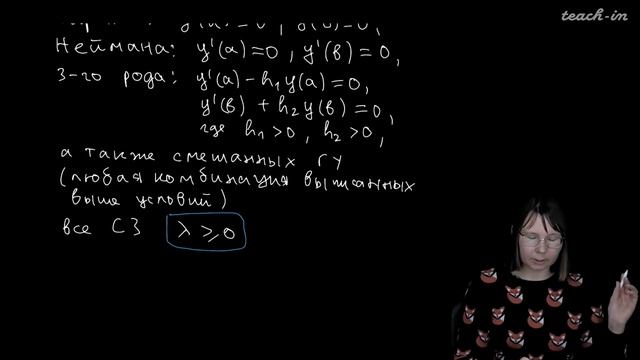 teach-in
Неймана: y'(a)=0, y'(в)=0,
3-го рода: y'(a) - h₁y(a)=0,
y'(в) + h₂y(в)=0,
где h₁>0, h₂>0,
а также смешанных гу
(любая комбинация выписанных
выше условий)
все СЗ λ ⩾ 0